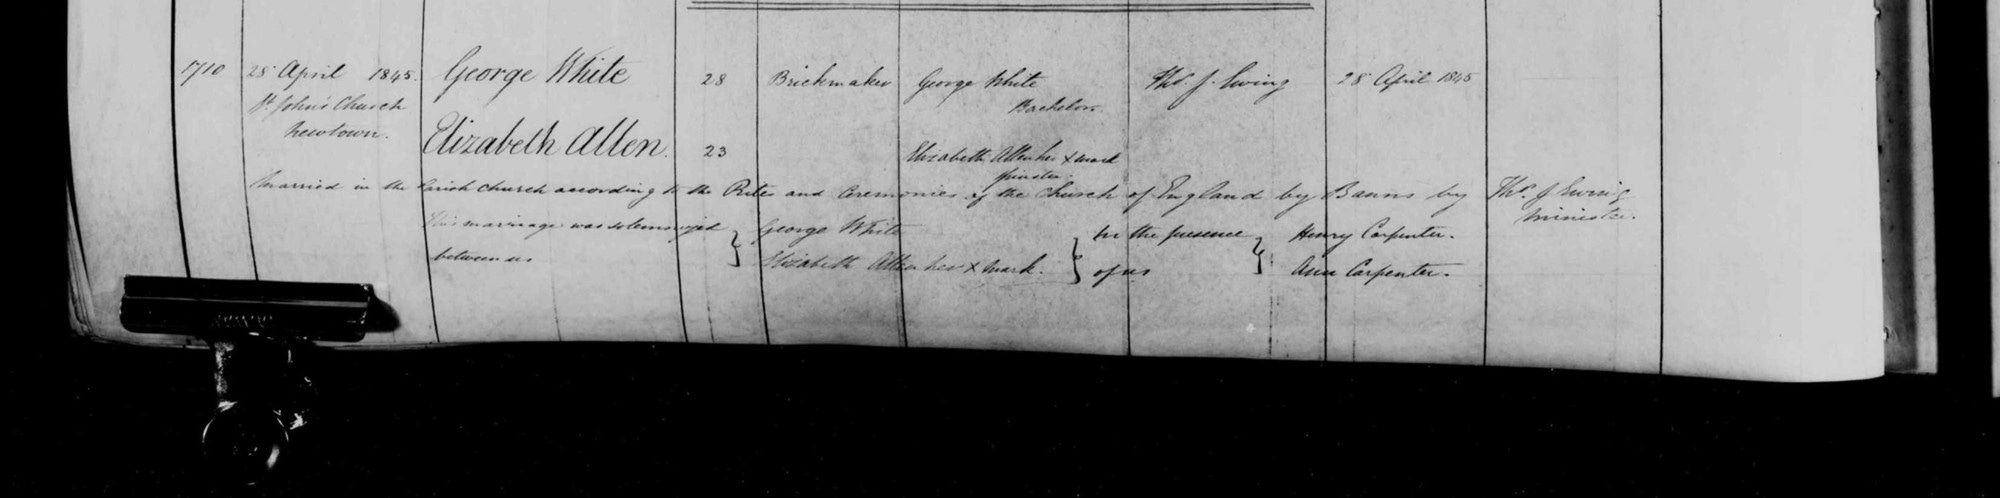 1710 28 April 1845. George White 28 Brickmaker George White Thos. J. Ewing 28 April 1845
St. John's Church Bachelor
Newtown. Elizabeth Allen. 23 Elizabeth Allen her x mark
Spinster.
Married in the Parish Church according to the Rite and Ceremonies of the Church of England by Banns by Thos. J. Ewing
Minister.
This marriage was solemnized } George White } In the presence } Henry Carpenter.
between us Elizabeth Allen her x mark. of us Ann Carpenter.